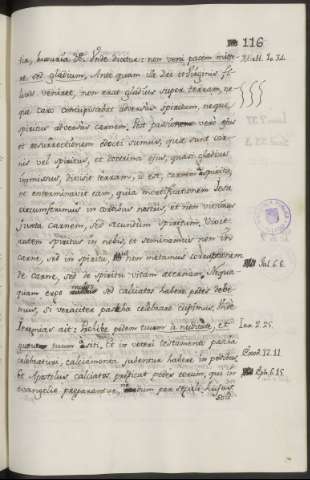 116
tia, luxuria &c. Unde dicitur: non veni pacem mitte-
re sed gladium. Ante quam
veniret, non erat gladius super terram, ne-
que caro concupiscebat adversus spiritum, neque
spiritus adversus carnem. Post passionem vero ejus
et resurrectionem docti sumus, quae sunt car-
nis vel spiritus, et doctrina ejus, quasi gladius
missus, divisit terram, id est, carnem
et exterminavit eam, quia mortificationem Jesu
circumferimus in corporibus nostris, et non vivimus
juxta carnem, sed secundum spiritum. Vivit
autem spiritus in nobis, et seminamus non in
carne, sed in spiritu, non metamus corruptionem
de carne, sed de spiritu vitam aeternam.
quam ergo sed calciatos habere pedes debe-
mus, si veraciter pascha celebrare cupimus. Unde
Jeremias ait: prohibe pedem tuum a nuditate, et
guttur tuum a siti, et in veteri testamento pascha
celebraturi, calciamenta jubentur habere in pedibus
et Apostolus calciatos praedicat pedes eorum, qui in
evangelii praeparatione, per
Matth. 10. 34.
Gal. 6. 8.
Jer. 2. 25.
Exod. 12. 11.
Eph. 6. 15.